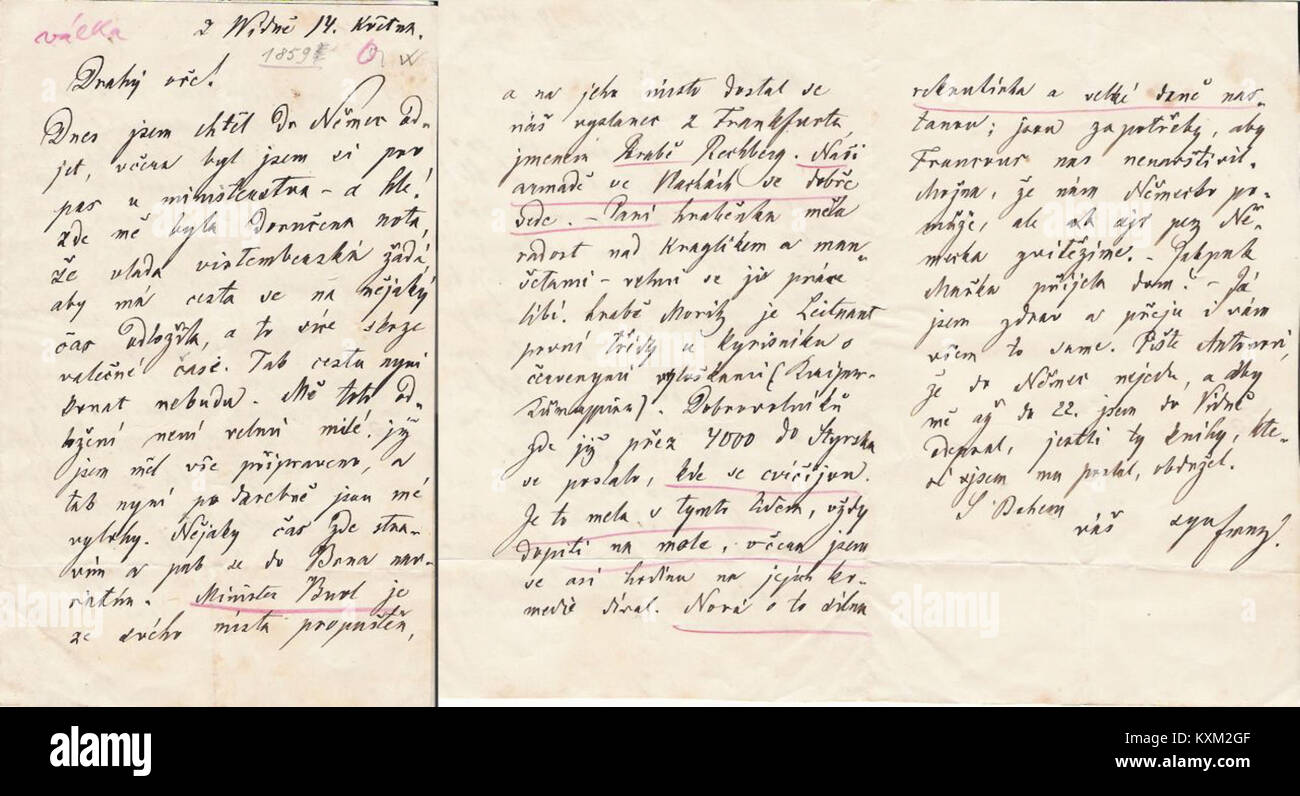 válka
Z Vídně 14. Května.
1859
Drahý otče!
Dnes jsem chtěl do Němec od-
jet, včera byl jsem si pro
pas u ministerstva – a hle!
zde mě byla doručena nota,
že vláda virtemberská žádá,
aby má cesta se na nějaký
čas odložila, a to sice skrze
válečné časi. Tak cestu nyní
konat nebudu. Mě toto od-
ložení není velmi milé. již
jsem měl vše připraveno, a
tak nyní po darebně jsou mé
vylohy. Nějaky čas zde strá-
vím a pak se do Brna nav-
rátím. Minister Buol je
ze svého místa propuštěn,
a na jeho místo dostal se
náš vyslanec z Frankfurta,
jmenem Hrabě Rechberg. Naší
armádě ve Vlachách se dobře
vede. – Paní hraběnka měla
radost nad Kraglikem a man-
šetami – velmi se jí práce
líbí. hrabě Moritz je Leitnant
první třídy u kyrisniků s
červenými vyloškami
Dobrovolníků
zde již přez 4000 do Styrska
se poslalo, kde se cvičijou.
Je to mela s tymto lidem, vždy
dopiti na mole, včera jsem
se asi hodinu na jejich ko-
medie díval. Nová a to silna
rekrutirka a velké daně nas-
tanou; jsou zapotřeby, aby
Francous nas nenavštivil.
Možna, že nám Německo po-
může, ale ak bez Ně-
mecka zvitěžime. – Jakpak
Muška přijela domů? – Já
jsem zdráv a přeju i vám
všem to samé. Pište Antonovi,
že do Němec nejedu, a aby
mě až do 22. jsem do Vídně
depsal, jestli ty knihy, kte-
ré jsem mu poslal, obdržel.
S Bohem
váš syn Franz.
alamy
Image ID: KXM2GF
www.alamy.com